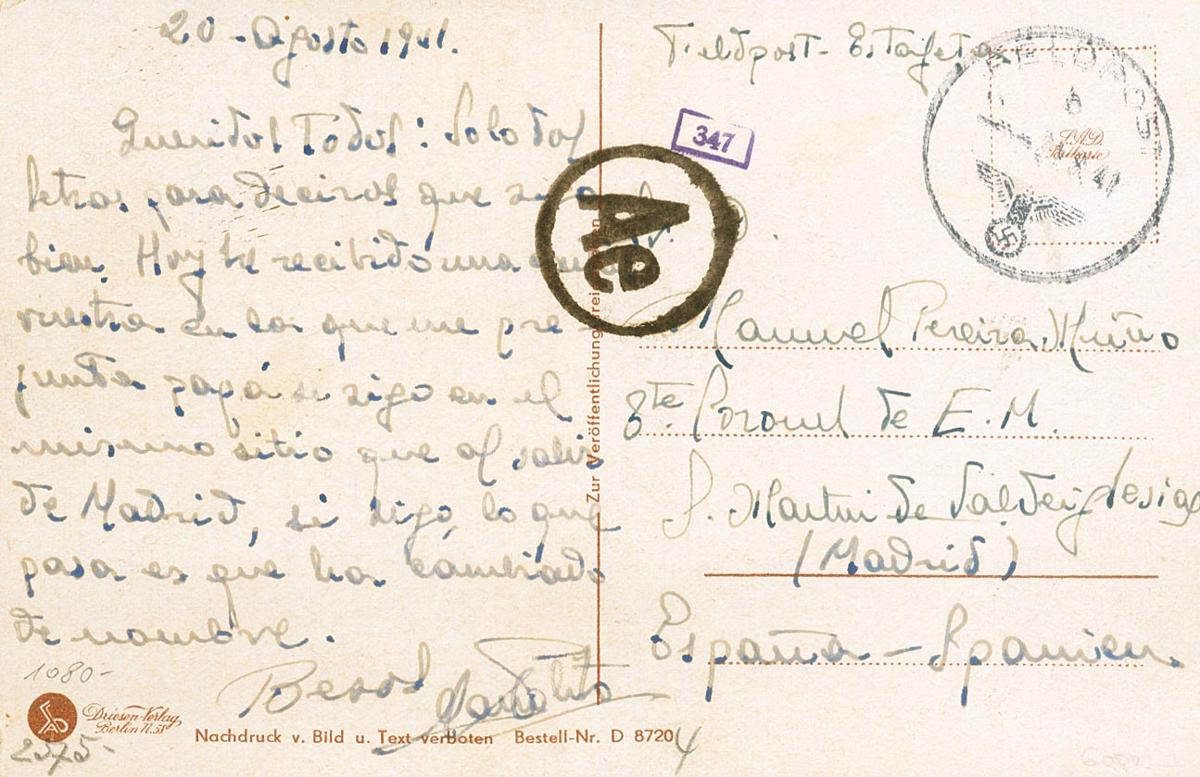 20 - Agosto 1941.
Queridos Todos: Solo dos
letras para deciros que sigo
bien. Hoy he recibido una carta
vuestra en la que me pre-
gunta papá si sigo en el
mismo sitio que al salir
de Madrid, si sigo, lo que
pasa es que ha cambiado
de nombre.
Besos
1080-
Driesen-Verlag
Berlin N.58
2575-
Nachdruck v. Bild u. Text verboten Bestell-Nr. D 8720
4
Zur Veröffentlichung frei
Feldpost - Estafeta
FELDPOST
S.A.D.
347
Ae
Manuel Pereira Muiño
Tte. Coronel de E.M.
S. Martin de Valdeiglesias
(Madrid)
España - Spanien.